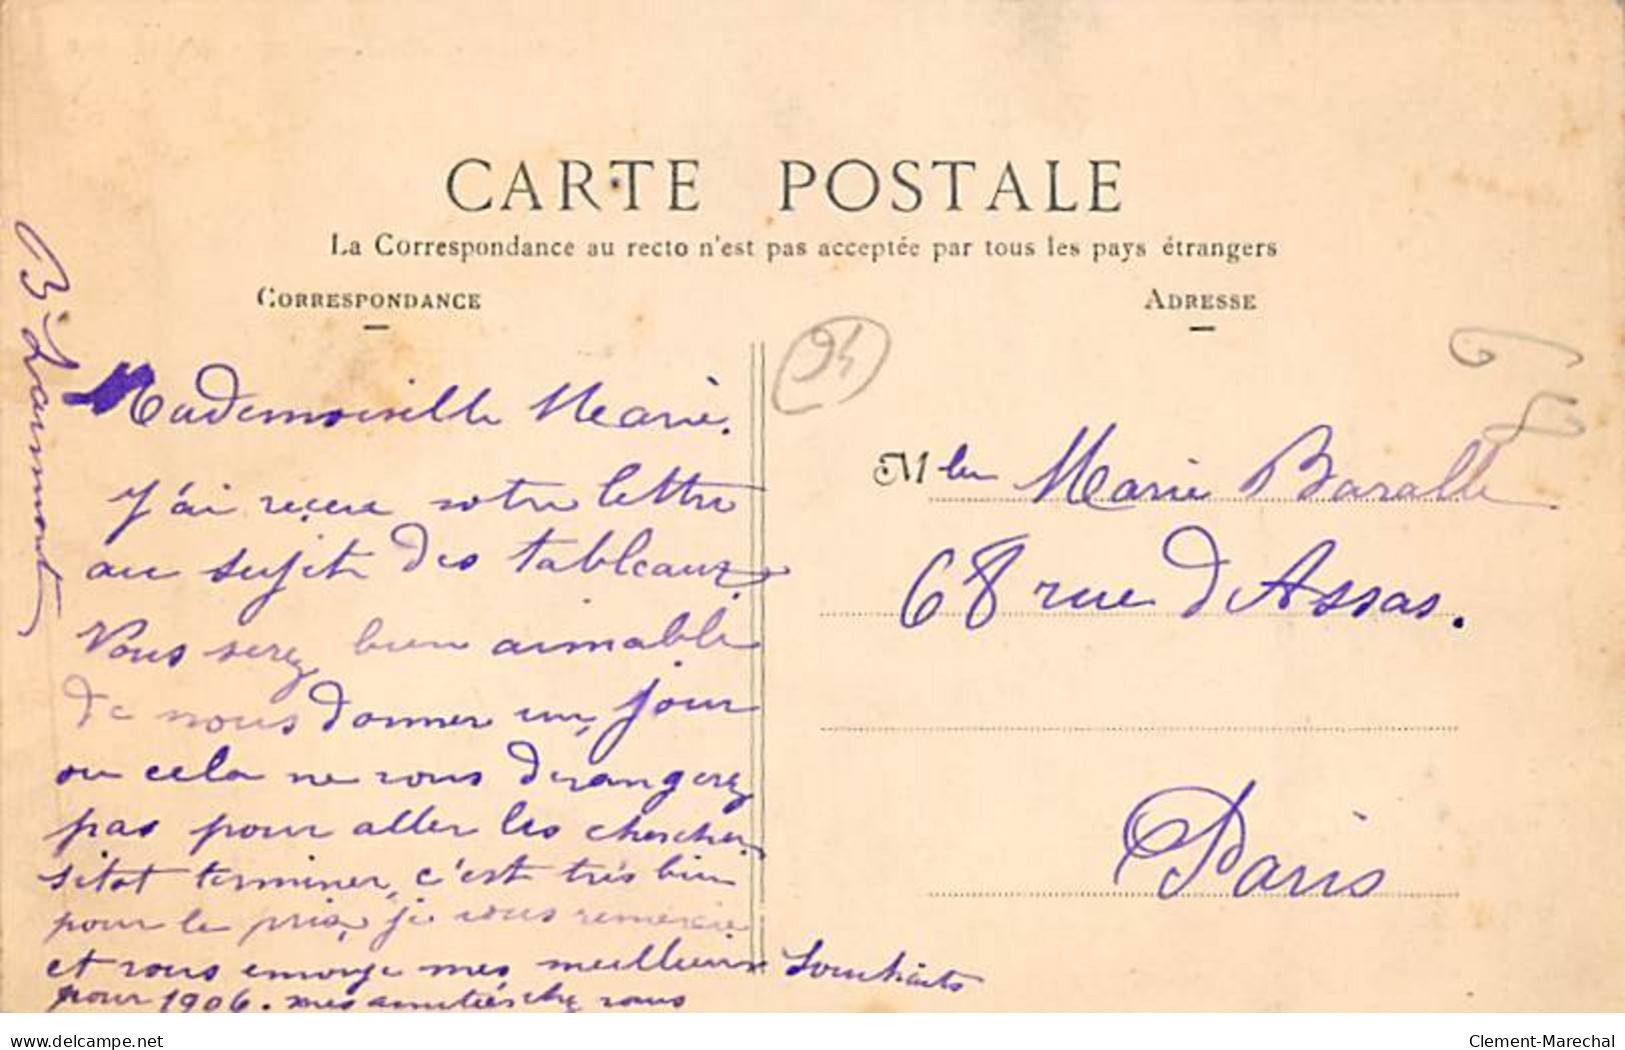 CARTE POSTALE
La Correspondance au recto n'est pas acceptée par tous les pays étrangers
CORRESPONDANCE
ADRESSE
94
Mademoiselle Marie.
J'ai reçue votre lettre
au sujet des tableaux,
Vous serez bien aimable
de nous donner un, jour
ou cela ne vous derangerez
pas pour aller les chercher
sitot terminer, c'est très bien
pour le prix, je vous remercie
et vous envoye mes meilleurs souhaits
pour 1906. mes amitiés chez vous
Mlle Marie Baralle
68 rue d'Assas.
Paris
delcampe.net
Clement-Marechal